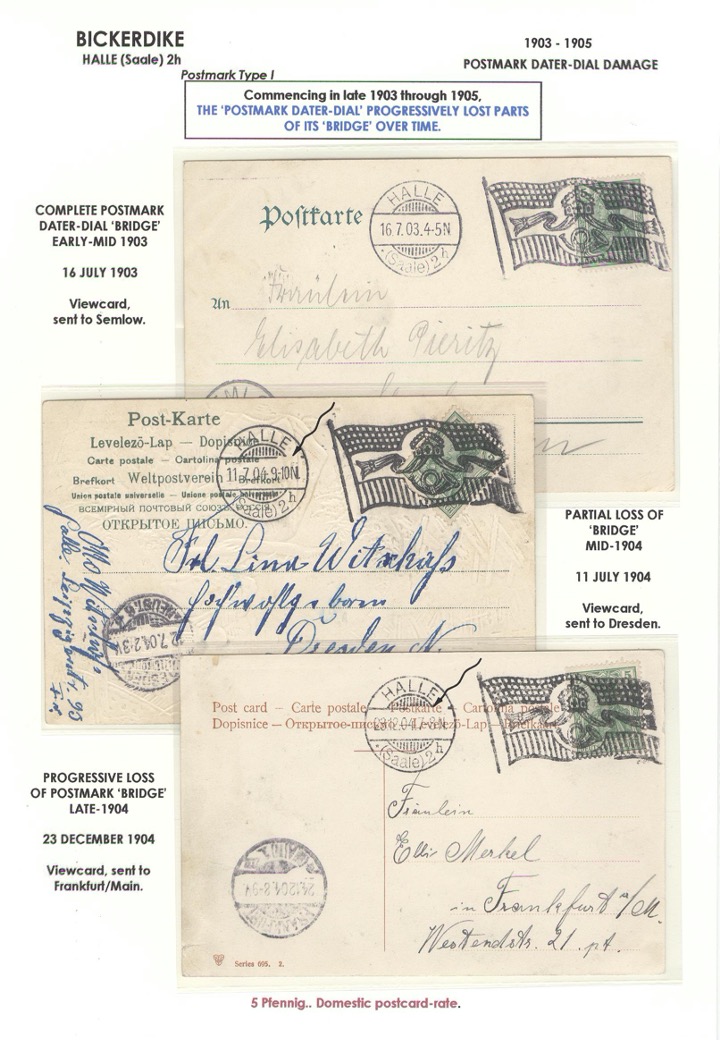 BICKERDIKE
HALLE (Saale) 2h
1903 - 1905
POSTMARK DATER-DIAL DAMAGE
Postmark Type I
Commencing in late 1903 through 1905,
THE 'POSTMARK DATER-DIAL' PROGRESSIVELY LOST PARTS
OF ITS 'BRIDGE' OVER TIME.
COMPLETE POSTMARK
DATER-DIAL 'BRIDGE'
EARLY-MID 1903
16 JULY 1903
Viewcard,
sent to Semlow.
Postkarte
HALLE
16.7.03.4-5N
(Saale) 2h
An
Fräulein
Elisabeth Pieritz
Post-Karte
Levelező-Lap — Dopisnice
Carte postale — Cartolina postale
Brefkort Weltpostverein Brefkort
Union postale universelle — Unione postale universale
ВСЕМІРНЫЙ ПОЧТОВЫЙ СОЮЗЪ РОССІЯ
ОТКРЫТОЕ ПИСЬМО.
HALLE
11.7.04.9-10N
(Saale) 2h
Dresden N.
12.7.04.2-3N
PARTIAL LOSS OF
'BRIDGE'
MID-1904
11 JULY 1904
Viewcard,
sent to Dresden.
Post card — Carte postale — Postkarte — Cartolina postale
Dopisnice — Открытое письмо — Levelező-Lap — Brefkort
HALLE
23.12.04.7-8N
(Saale) 2h
5
Fräulein
Elli Merkel
in Frankfurt a/M.
Westendstr. 21. pt.
24.12.04.8-9V
Series 695. 2.
PROGRESSIVE LOSS
OF POSTMARK 'BRIDGE'
LATE-1904
23 DECEMBER 1904
Viewcard, sent to
Frankfurt/Main.
5 Pfennig.. Domestic postcard-rate.